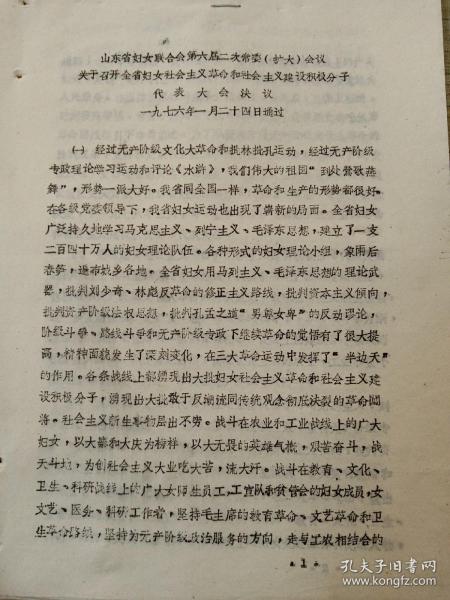 山东省妇女联合会第六届二次常委(扩大)会议
关于召开全省妇女社会主义革命和社会主义建设积极分子
代表大会决议
一九七六年一月二十四日通过
㈠ 经过无产阶级文化大革命和批林批孔运动，经过无产阶级
专政理论学习运动和评论《水浒》，我们伟大的祖国“到处莺歌燕
舞”，形势一派大好。我省同全国一样，革命和生产的形势都很好。
在各级党委领导下，我省妇女运动也出现了崭新的局面。全省妇女
广泛持久地学习马克思主义、列宁主义、毛泽东思想，建立了一支
二百四十万人的妇女理论队伍。各种形式的妇女理论小组，象雨后
春笋，遍布城乡各地。全省妇女用马列主义、毛泽东思想的理论武
器，批判刘少奇、林彪反革命的修正主义路线，批判资本主义倾向，
批判资产阶级法权思想，批判孔孟之道“男尊女卑”的反动谬论，
阶级斗争、路线斗争和无产阶级专政下继续革命的觉悟有了很大提
高，精神面貌发生了深刻变化，在三大革命运动中发挥了“半边天”
的作用。各条战线上都涌现出大批妇女社会主义革命和社会主义建
设积极分子，涌现出大批敢于反潮流同传统观念彻底决裂的革命闯
将。社会主义新生事物层出不穷。战斗在农业和工业战线上的广大
妇女，以大寨和大庆为榜样，以大无畏的英雄气概，艰苦奋斗，战
天斗地，为创社会主义大业吃大苦，流大汗。战斗在教育、文化、
卫生、科研战线上的广大女师生员工，工宣队和贫管会的妇女成员，女
文艺、医务、科研工作者，坚持毛主席的教育革命、文艺革命和卫
生革命路线，坚持为无产阶级政治服务的方向，走与工农相结合的
·1·
孔夫子旧书网